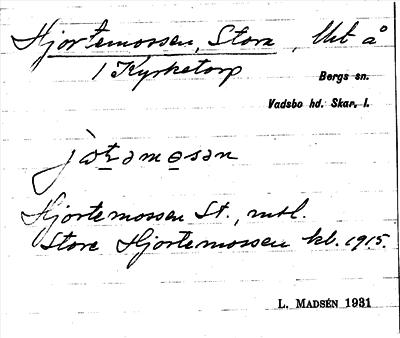 Hjortemossen, Stora, Ukt å
1 Kyrketorp
Bergs sn.
Vadsbo hd. Skar. l.
jotəmosən
Hjortemossen St., mtl.
Store Hjortemossen kb. 1915.
L. MADSÉN 1931